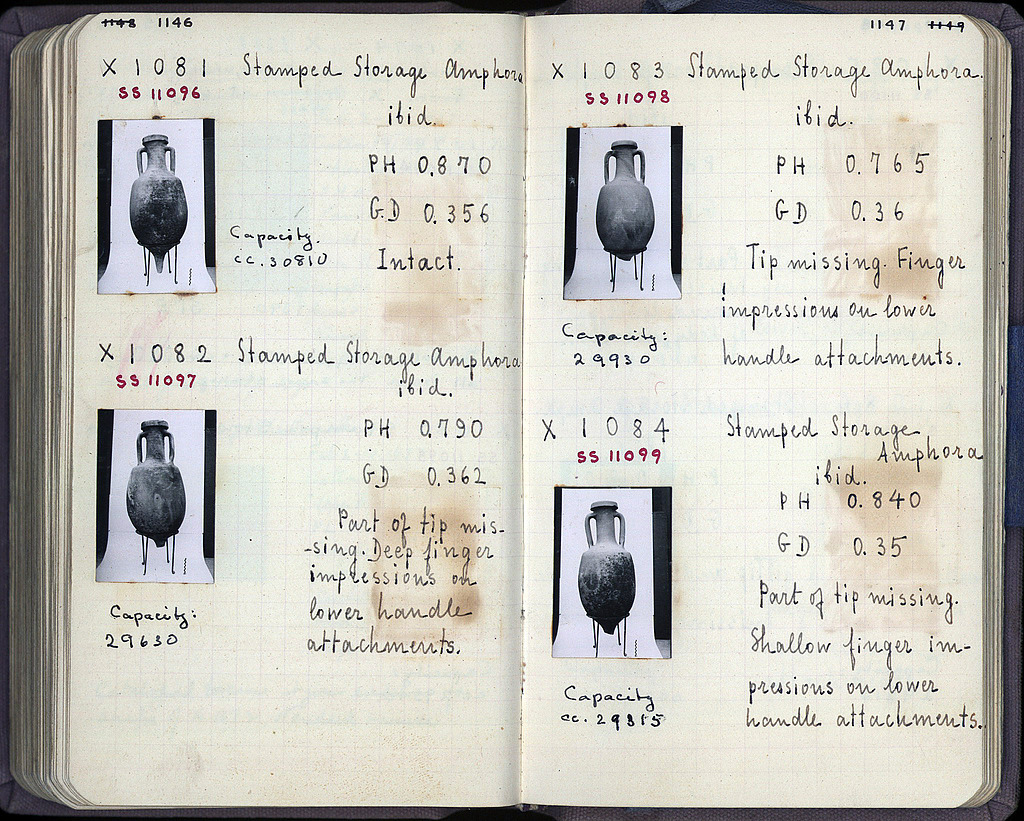 1148 1146
X 1081 Stamped Storage Amphora
SS 11096
ibid.
PH 0.870
G.D 0.356
Capacity.
cc. 30810
Intact.
X 1082 Stamped Storage Amphora
SS 11097
ibid.
PH 0.790
GD 0.362
Part of tip mis-
-sing. Deep finger
impressions on
lower handle
attachments.
Capacity:
29630
1147 1149
X 1083 Stamped Storage Amphora.
SS 11098
ibid.
PH 0.765
GD 0.36
Tip missing. Finger
impressions on lower
handle attachments.
Capacity:
29930
X 1084 Stamped Storage
Amphora
SS 11099
ibid.
PH 0.840
GD 0.35
Part of tip missing.
Shallow finger im-
pressions on lower
handle attachments.
Capacity
cc. 29815